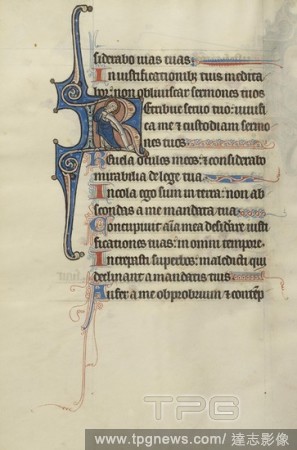 siderabo uias tuas
In iustificationibz tuis medita
bor: non obliuiscar sermones tuos
Retribue seruo tuo: uiuifi
ca me & custodiam sermo
nes tuos
Reuela oculos meos: & considerabo
mirabilia de lege tua
Incola ego sum in terra: non abs
condas a me mandata tua
Concupiuit aĩa mea desiderare iusti
ficationes tuas: in omni tempore
Increpasti superbos: maledicti qui
declinant a mandatis tuis
Aufer a me obprobrium & contẽp
TPG
www.tpgnews.com/達志影像